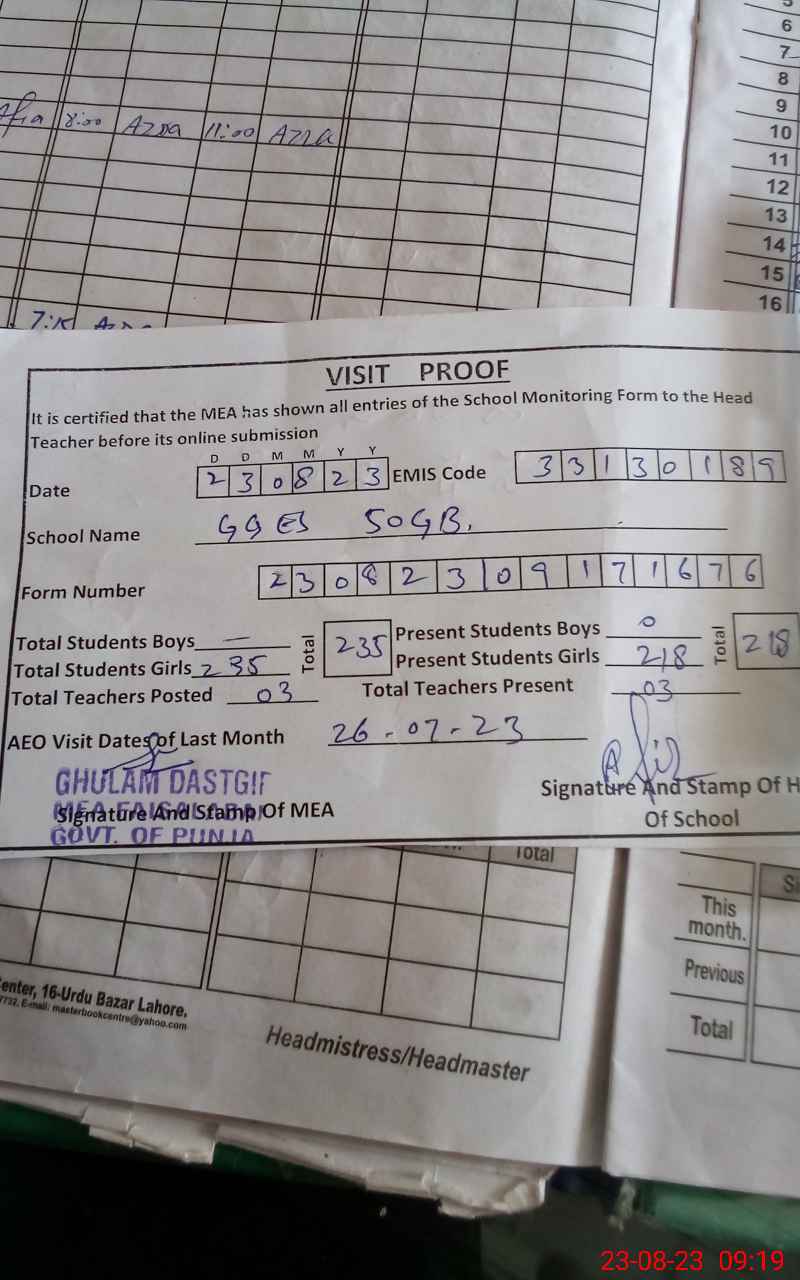 8:00 Azra 11:00 Azra
5
6
7
8
9
10
11
12
13
14
15
16
7:15
VISIT PROOF
It is certified that the MEA has shown all entries of the School Monitoring Form to the Head
Teacher before its online submission
D D M M Y Y
Date 2 3 0 8 2 3 EMIS Code 3 3 1 3 0 1 8 9
School Name GGES 50GB.
Form Number 2 3 0 8 2 3 0 9 1 7 1 6 7 6
Total Students Boys — Total 235 Present Students Boys 0 Total 218
Total Students Girls 235 Present Students Girls 218
Total Teachers Posted 03 Total Teachers Present 03
AEO Visit Dates of Last Month 26-07-23
GHULAM DASTGIR
MEA FAISALABAD
Signature And Stamp Of MEA
GOVT. OF PUNJA
Signature And Stamp Of H
Of School
Total
This
month.
Previous
Total
enter, 16-Urdu Bazar Lahore,
7732, E-mail: masterbookcentre@yahoo.com
Headmistress/Headmaster
23-08-23 09:19